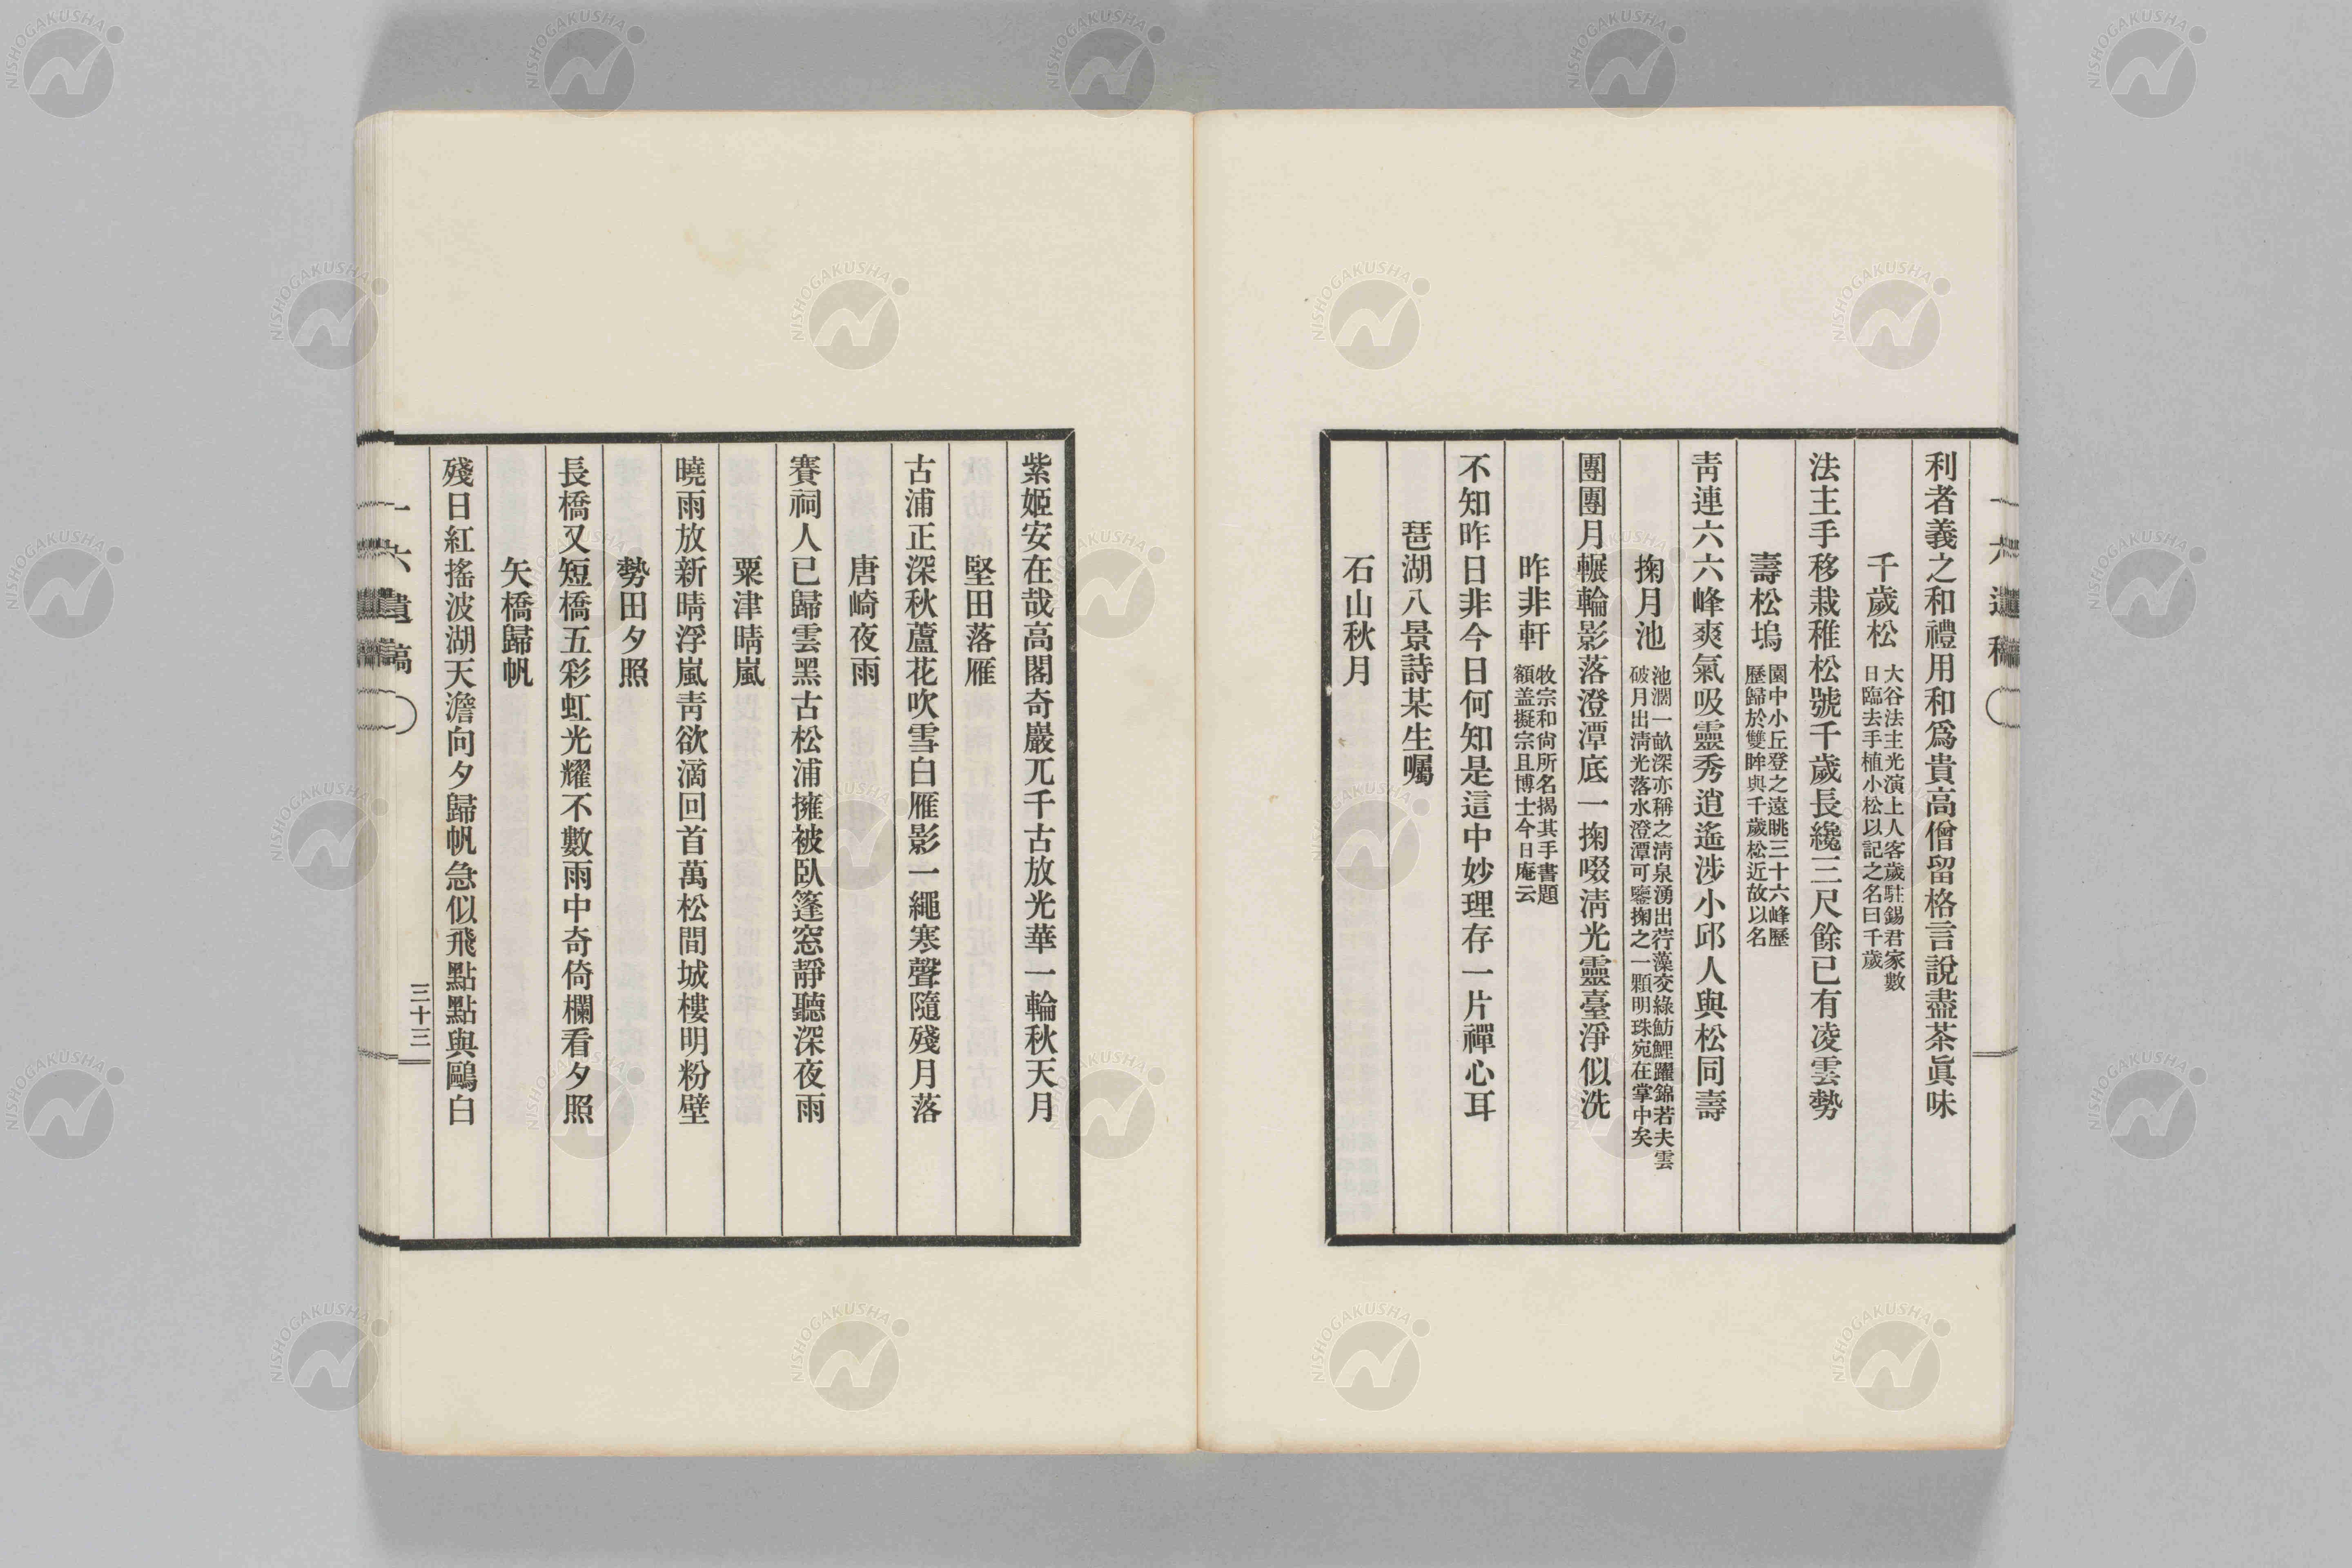 利者義之和禮用和爲貴高僧留格言說盡茶眞味
千歲松 大谷法主光演上人客歲駐錫君家數
日臨去手植小松以記之名曰千歲
法主手移栽稚松號千歲長纔三尺餘已有凌雲勢
壽松塢 園中小丘登之遠眺三十六峰歷
歷歸於雙眸與千歲松近故以名
靑連六六峰爽氣吸靈秀逍遙涉小邱人與松同壽
掬月池 池濶一畝深亦稱之淸泉湧出荇藻交綠魴鯉躍錦若夫雲
破月出淸光落水澄潭可鑒掬之一顆明珠宛在掌中矣
團團月輾輪影落澄潭底一掬啜淸光靈臺淨似洗
昨非軒 牧宗和尙所名揭其手書題
額盖擬宗且博士今日庵云
不知昨日非今日何知是這中妙理存一片禪心耳
琶湖八景詩某生囑
石山秋月
紫姬安在哉高閣奇巖兀千古放光華一輪秋天月
堅田落雁
古浦正深秋蘆花吹雪白雁影一繩寒聲隨殘月落
唐崎夜雨
賽祠人已歸雲黑古松浦擁被臥篷窓靜聽深夜雨
粟津晴嵐
曉雨放新晴浮嵐靑欲滴回首萬松間城樓明粉壁
勢田夕照
長橋又短橋五彩虹光耀不數雨中奇倚欄看夕照
矢橋歸帆
殘日紅搖波湖天澹向夕歸帆急似飛點點與鷗白
一六遺稿
三十三
NISHOGAKUSHA